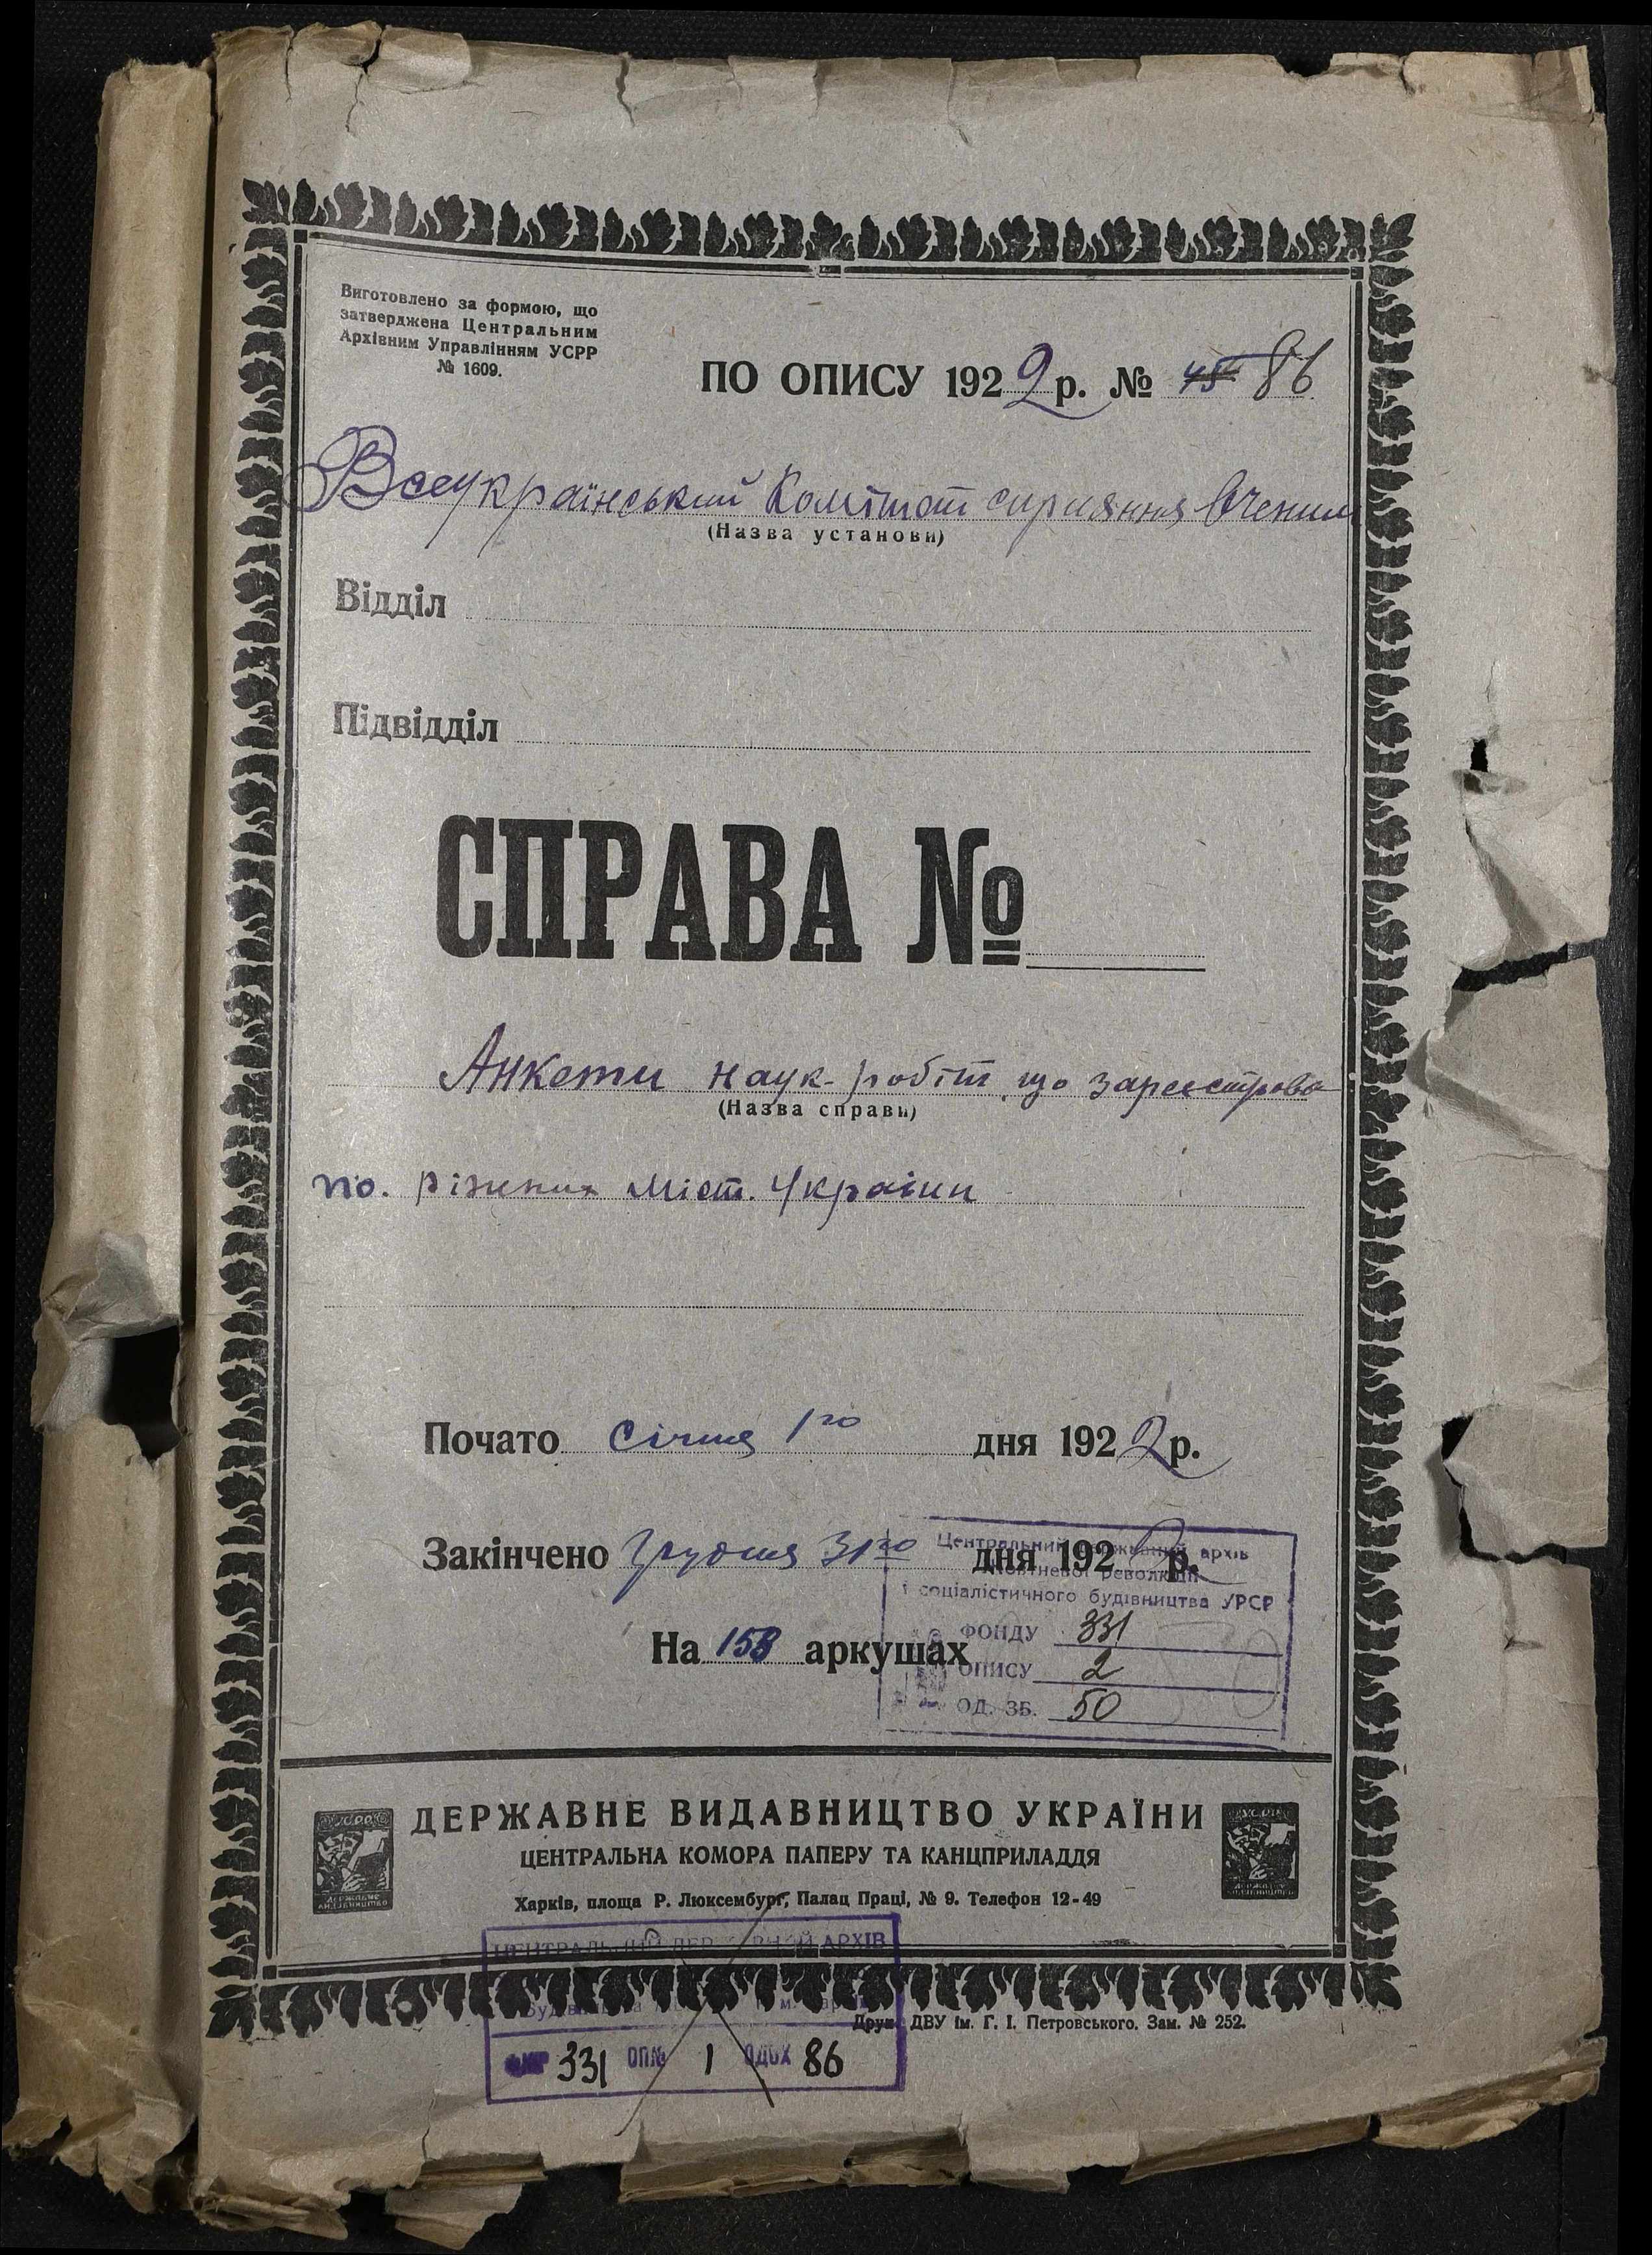 Виготовлено за формою, що
затверджена Центральним
Архівним Управлінням УСРР
№ 1609.
ПО ОПИСУ 1922 р. № 45 86
Всеукраїнський Комітет сприяння Вченим
(Назва установи)
Відділ
Підвідділ
СПРАВА №
Анкети наук-робіт що зареєстрова
(Назва справи)
по. ріжних міст. України
Почато січня 1го дня 1922 р.
Закінчено Грудня 31го дня 1922 р.
Центральний державний архів
Жовтневої революції
і соціалістичного будівництва УРСР
На 153 аркушах
ФОНДУ 331
ОПИСУ 2
ОД. ЗБ. 50
ДЕРЖАВНЕ ВИДАВНИЦТВО УКРАЇНИ
ЦЕНТРАЛЬНА КОМОРА ПАПЕРУ ТА КАНЦПРИЛАДДЯ
Харків, площа Р. Люксембурґ, Палац Праці, № 9. Телефон 12-49
ЦЕНТРАЛЬНИЙ ДЕРЖАВНИЙ АРХІВ
Друк. ДВУ ім. Г. І. Петровського. Зам. № 252.
331 ОП№ 1 ОДОХ 86